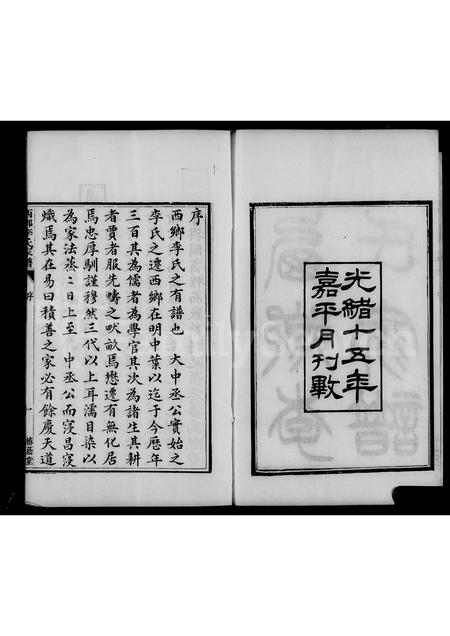 光緒十五年
嘉平月刊
序
西鄉李氏之有譜也 大中丞公實始之
李氏之遷西鄉在明中葉以迄于今歷年
三百其為儒者為學官其次為諸生其耕
者賈者服先疇之畎畝焉懋遷有無化居
焉忠厚馴謹穆然三代以上耳濡目染以
為家法蒸〻日上至 中丞公而寖昌寖
熾焉其在易曰積善之家必有餘慶天道
序
一